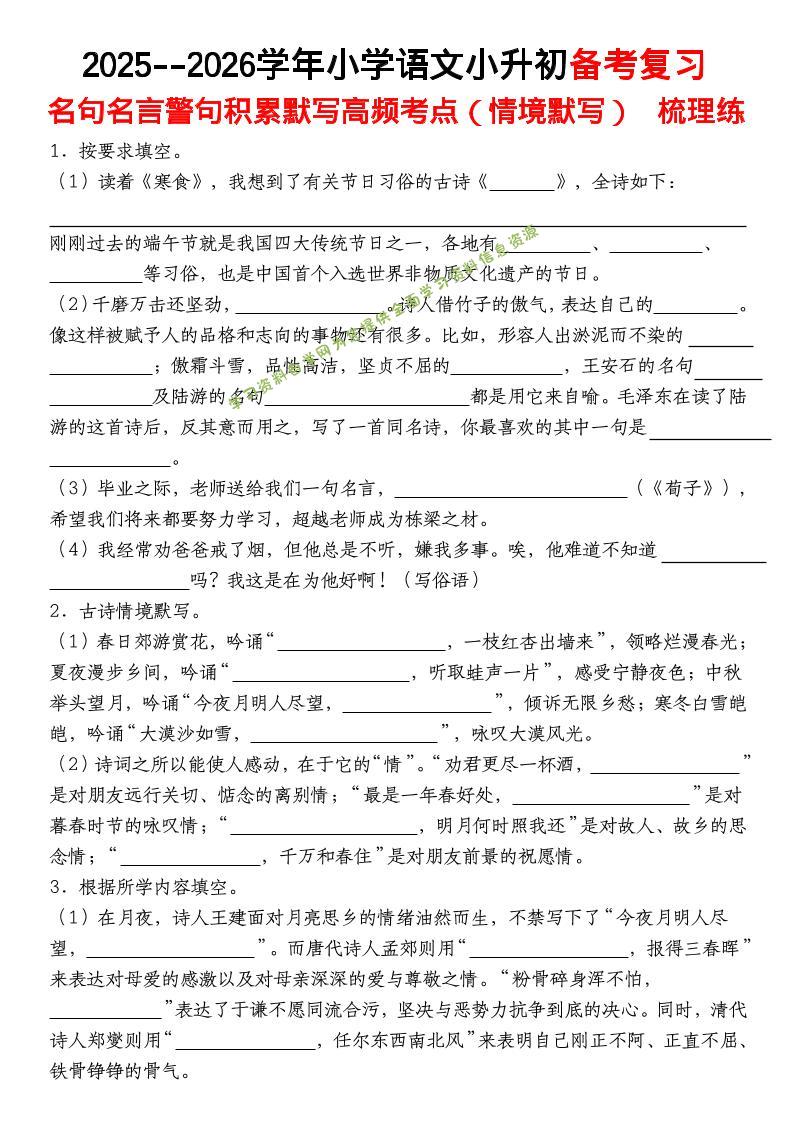 2025--2026学年小学语文小升初备考复习
名句名言警句积累默写高频考点（情境默写） 梳理练
1．按要求填空。
（1）读着《寒食》，我想到了有关节日习俗的古诗《_______》，全诗如下：
刚刚过去的端午节就是我国四大传统节日之一，各地有__________、__________、
__________等习俗，也是中国首个入选世界非物质文化遗产的节日。
（2）千磨万击还坚劲，________________。诗人借竹子的傲气，表达自己的_________。
像这样被赋予人的品格和志向的事物还有很多。比如，形容人出淤泥而不染的_______
___________；傲霜斗雪，品性高洁，坚贞不屈的____________，王安石的名句_______
___________及陆游的名句______________________都是用它来自喻。毛泽东在读了陆
游的这首诗后，反其意而用之，写了一首同名诗，你最喜欢的其中一句是_____________
_____________。
（3）毕业之际，老师送给我们一句名言，_________________________（《荀子》），
希望我们将来都要努力学习，超越老师成为栋梁之材。
（4）我经常劝爸爸戒了烟，但他总是不听，嫌我多事。唉，他难道不知道___________
_______________吗？我这是在为他好啊！（写俗语）
2．古诗情境默写。
（1）春日郊游赏花，吟诵“__________________，一枝红杏出墙来”，领略烂漫春光；
夏夜漫步乡间，吟诵“___________________，听取蛙声一片”，感受宁静夜色；中秋
举头望月，吟诵“今夜月明人尽望，________________”，倾诉无限乡愁；寒冬白雪皑
皑，吟诵“大漠沙如雪，____________________”，咏叹大漠风光。
（2）诗词之所以能使人感动，在于它的“情”。“劝君更尽一杯酒，________________”
是对朋友远行关切、惦念的离别情；“最是一年春好处，___________________”是对
暮春时节的咏叹情；“____________________，明月何时照我还”是对故人、故乡的思
念情；“_______________，千万和春住”是对朋友前景的祝愿情。
3．根据所学内容填空。
（1）在月夜，诗人王建面对月亮思乡的情绪油然而生，不禁写下了“今夜月明人尽
望，__________________”。而唐代诗人孟郊则用“_________________，报得三春晖”
来表达对母爱的感激以及对母亲深深的爱与尊敬之情。“粉骨碎身浑不怕，
____________”表达了于谦不愿同流合污，坚决与恶势力抗争到底的决心。同时，清代
诗人郑燮则用“_______________，任尔东西南北风”来表明自己刚正不阿、正直不屈、
铁骨铮铮的骨气。